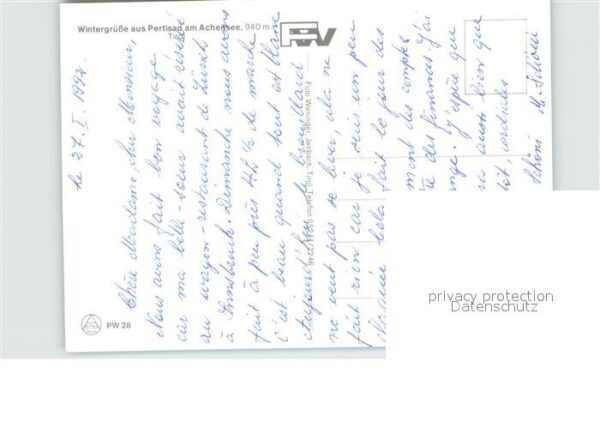 Wintergrüße aus Pertisau am Achensee, 940 m
Tirol
RW
Foto Weninger, Jenbach, Tirol, Telefon 05244/2246
PW 28
le 27. I. 1992.
Chère Madame, cher Monsieur,
Nous avons fait bon voyage
car ma belle-sœur avait réservé
au wagon-restaurant de Zürich
à Innsbruck. Dimanche nous avons
fait à peu près 4 1/2 h de marche
c'est beau quand tout est blanc
Aujourd'hui le brouillard
ne veut pas se lever, cela ne
fait rien car je suis un peu
cela fait le jour des
ment des comptes
des finances. J'ai
J'espère que
aussi bien que
cordiales
Schöni
privacy protection
Datenschutz